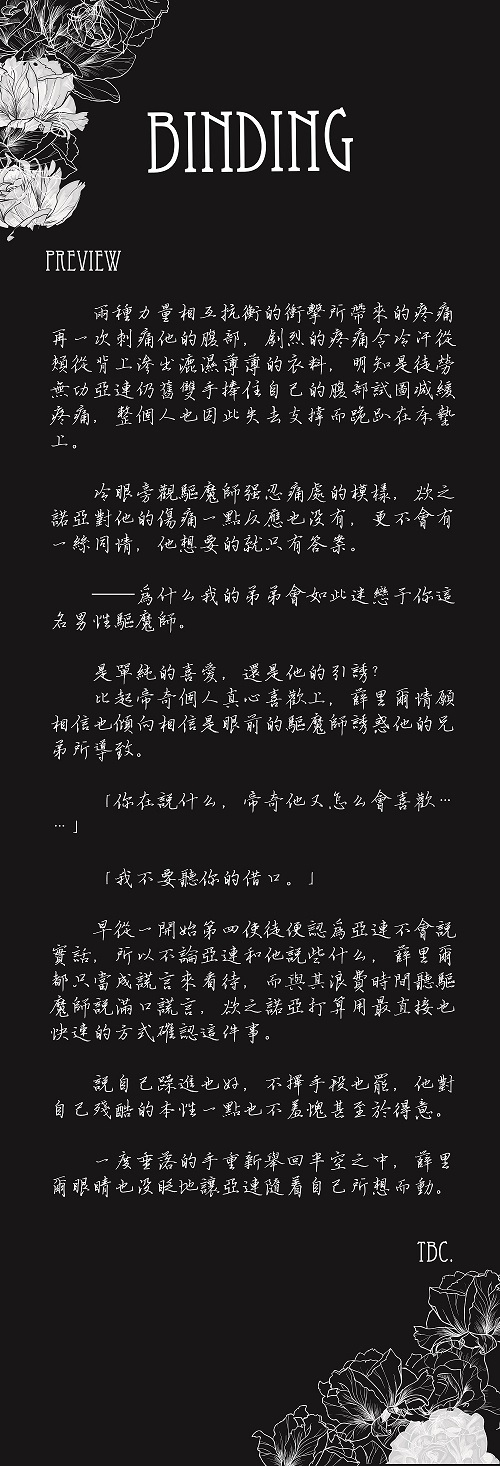 BINDING
PREVIEW
兩種力量相互抗衡的衝擊所帶來的疼痛
再一次刺痛他的腹部，劇烈的疼痛令冷汗從
頰從背上滲出漉濕薄薄的衣料，明知是徒勞
無功亞連仍舊雙手捧住自己的腹部試圖減緩
疼痛，整個人也因此失去支撐而跪趴在床墊
上。
冷眼旁觀驅魔師强忍痛處的模樣，欲之
諾亞對他的傷痛一點反應也没有，更不會有
一絲同情，他想要的就只有答案。
——爲什么我的弟弟會如此迷戀于你這
名男性驅魔師。
是單純的喜愛，還是他的引誘？
比起帝奇個人真心喜歡上，薛里爾情願
相信也傾向相信是眼前的驅魔師誘惑他的兄
弟所導致。
「你在説什么，帝奇他又怎么會喜歡…
…」
「我不要聽你的借口。」
早從一開始第四使徒便認爲亞連不會説
實話，所以不論亞連和他説些什么，薛里爾
都只當成謊言來看待，而與其浪費時間聽驅
魔師説滿口謊言，欲之諾亞打算用最直接也
快速的方式確認這件事。
説自己躁進也好，不擇手段也罷，他對
自己殘酷的本性一點也不羞愧甚至於得意。
一度垂落的手重新舉回半空之中，薛里
爾眼睛也没眨地讓亞連隨着自己所想而動。
TBC.